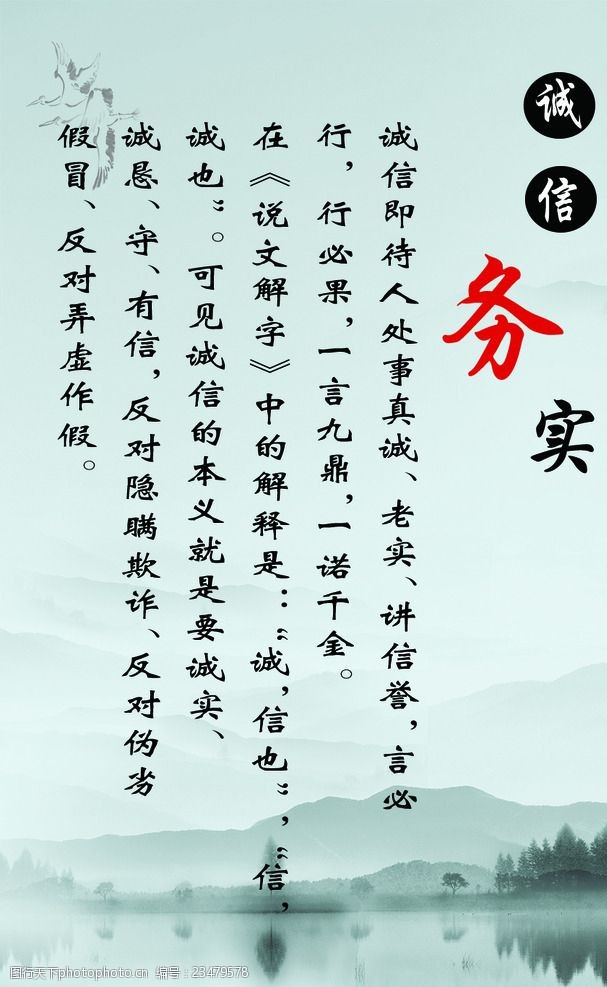 诚信
务实
诚信即待人处事真诚、老实、讲信誉，言必
行，行必果，一言九鼎，一诺千金。
在《说文解字》中的解释是：“诚，信也”，“信，
诚也”。可见诚信的本义就是要诚实、
诚恳、守、有信，反对隐瞒欺诈、反对伪劣
假冒、反对弄虚作假。
图行天下photophoto.cn 编号：23479578